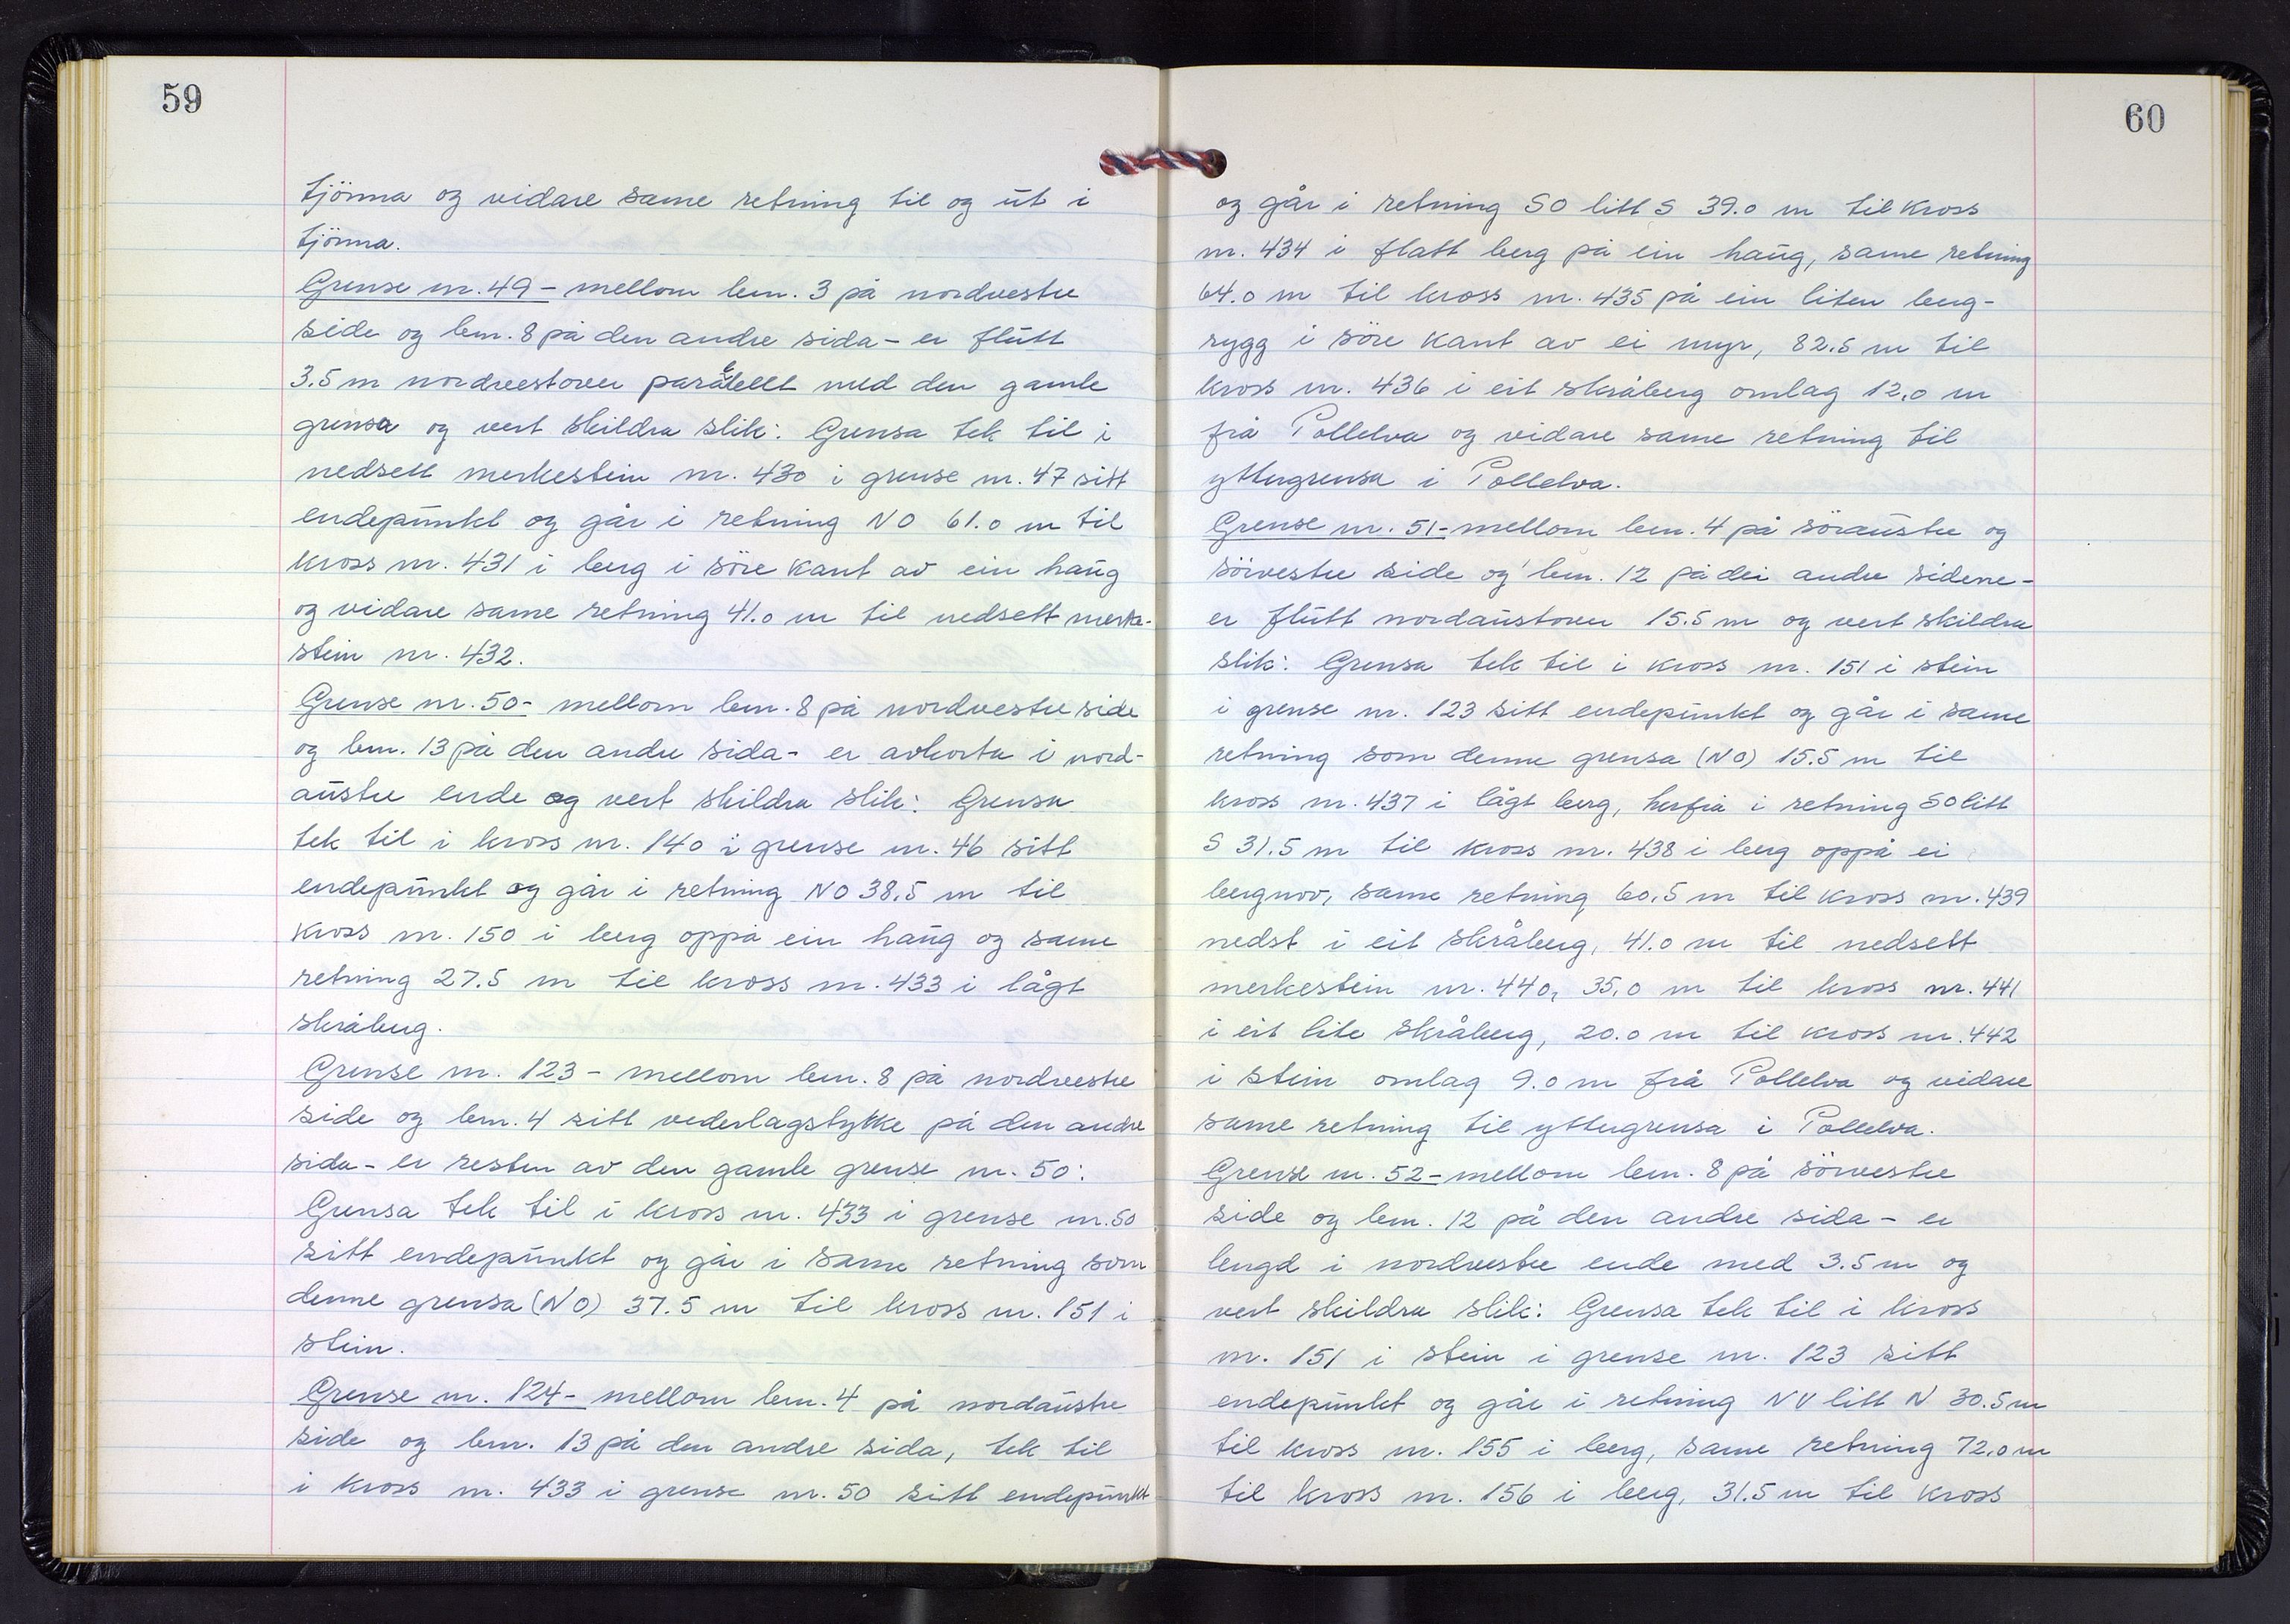 59
tjönna og vidare same retning til og ut i
tjönna.
Grense nr. 49 - mellom lem. 3 på nordvestre
side og lem. 8 på den andre sida - er flutt
3.5 m nordvestover paralellt med den gamle
grensa og vert skildra slik: Grensa tek til i
nedsett merkestein nr. 430 i grense nr. 47 sitt
endepunkt og går i retning NO 61.0 m til
kross nr. 431 i berg i söre kant av ein haug
og vidare same retning 41.0 m til nedsett merke-
stein nr. 432.
Grense nr. 50 - mellom lem. 8 på nordvestre side
og lem. 13 på den andre sida - er avkorta i nord-
austre ende og vert skildra slik: Grensa
tek til i kross nr. 140 i grense nr. 46 sitt
endepunkt og går i retning NO 38.5 m til
kross nr. 150 i berg oppå ein haug og same
retning 27.5 m til kross nr. 433 i lågt
skråberg.
Grense nr. 123 - mellom lem. 8 på nordvestre
side og lem. 4 sitt vederlagstykke på den andre
sida - er resten av den gamle grense nr. 50:
Grensa tek til i kross nr. 433 i grense nr. 50
sitt endepunkt og går i same retning som
denne grensa (NO) 37.5 m til kross nr. 151 i
stein.
Grense nr. 124 - mellom lem. 4 på nordaustre
side og lem. 13 på den andre sida, tek til
i kross nr. 433 i grense nr. 50 sitt endepunkt
60
og går i retning SO litt S 39.0 m til kross
nr. 434 i flatt berg på ein haug, same retning
64.0 m til kross nr. 435 på ein liten berg-
rygg i söre kant av ei myr, 82.5 m til
kross nr. 436 i eit skråberg omlag 12.0 m
frå Pollelva og vidare same retning til
yttergrensa i Pollelva.
Grense nr. 51 - mellom lem. 4 på söraustre og
sörvestre side og lem. 12 på dei andre sidene -
er flutt nordaustover 15.5 m og vert skildra
slik: Grensa tek til i kross nr. 151 i stein
i grense nr. 123 sitt endepunkt og går i same
retning som denne grensa (NO) 15.5 m til
kross nr. 437 i lågt berg, herfrå i retning SO litt
S 31.5 m til kross nr. 438 i berg oppå ei
bergnov, same retning 60.5 m til kross nr. 439
nedst i eit skråberg, 41.0 m til nedsett
merkestein nr. 440, 35.0 m til kross nr. 441
i eit lite skråberg, 20.0 m til kross nr. 442
i stein omlag 9.0 m frå Pollelva og vidare
same retning til yttergrensa i Pollelva.
Grense nr. 52 - mellom lem. 8 på sörvestre
side og lem. 12 på den andre sida - er
lengd i nordvestre ende med 3.5 m og
vert skildra slik: Grensa tek til i kross
nr. 151 i stein i grense nr. 123 sitt
endepunkt og går i retning NV litt N 30.5 m
til kross nr. 155 i berg, same retning 72.0 m
til kross nr. 156 i berg, 31.5 m til kross